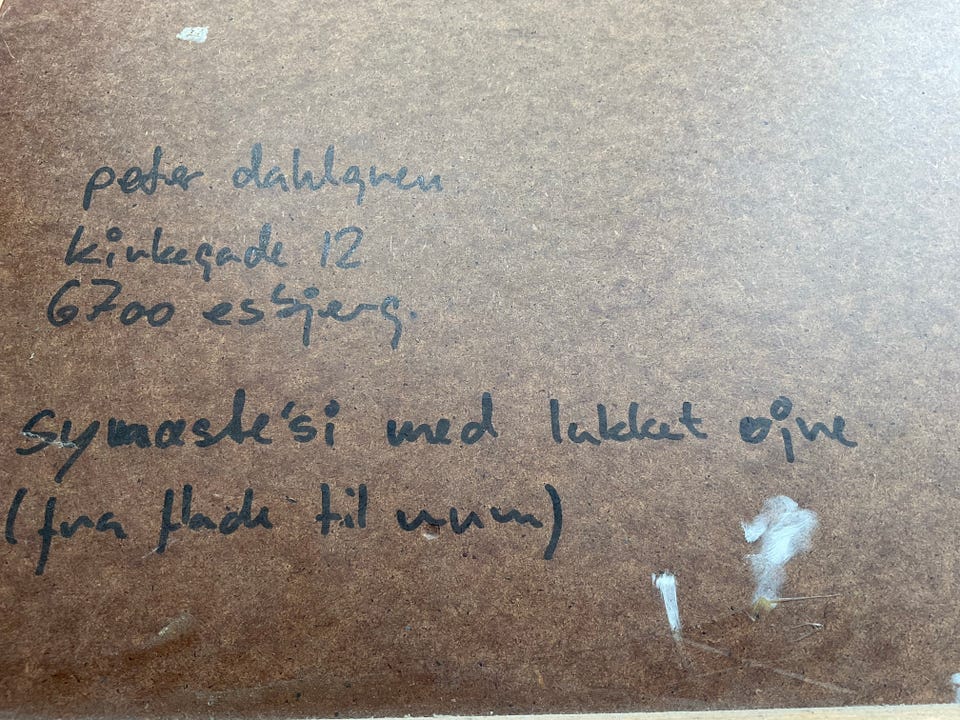 peter dahlgren
kirkegade 12
6700 esbjerg.
med lukket øjne
(fra flade til rum)